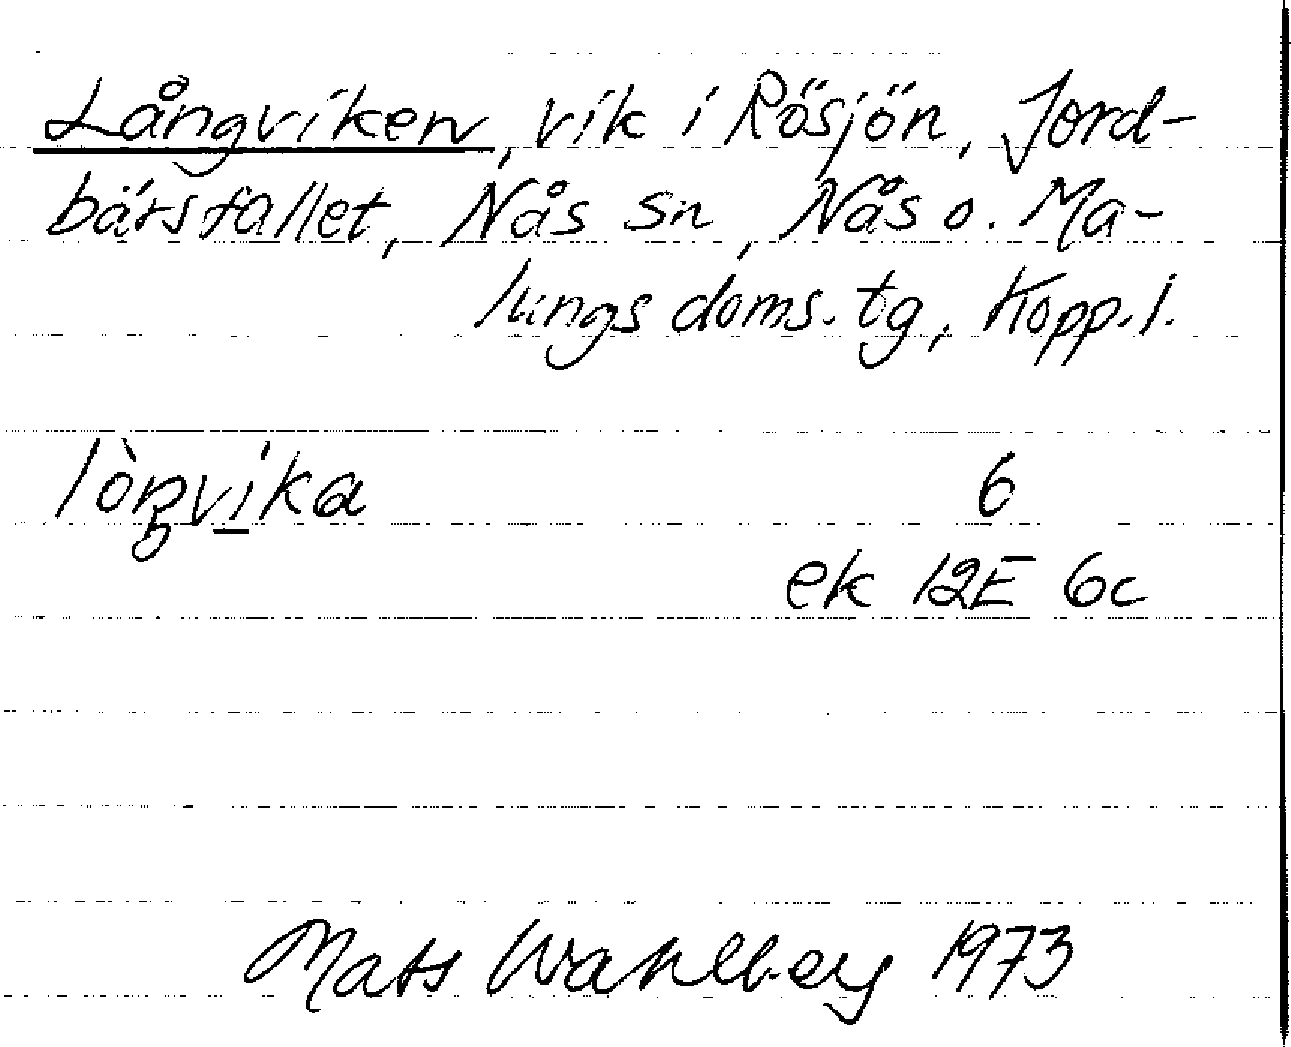 Långviken, vik i Rösjön, Jord-
bärsfallet, Nås sn, Nås o. Ma-
lungs doms. tg, Kopp. l.
lòŋvika 6
ek 12E 6c
Mats Wahlberg 1973